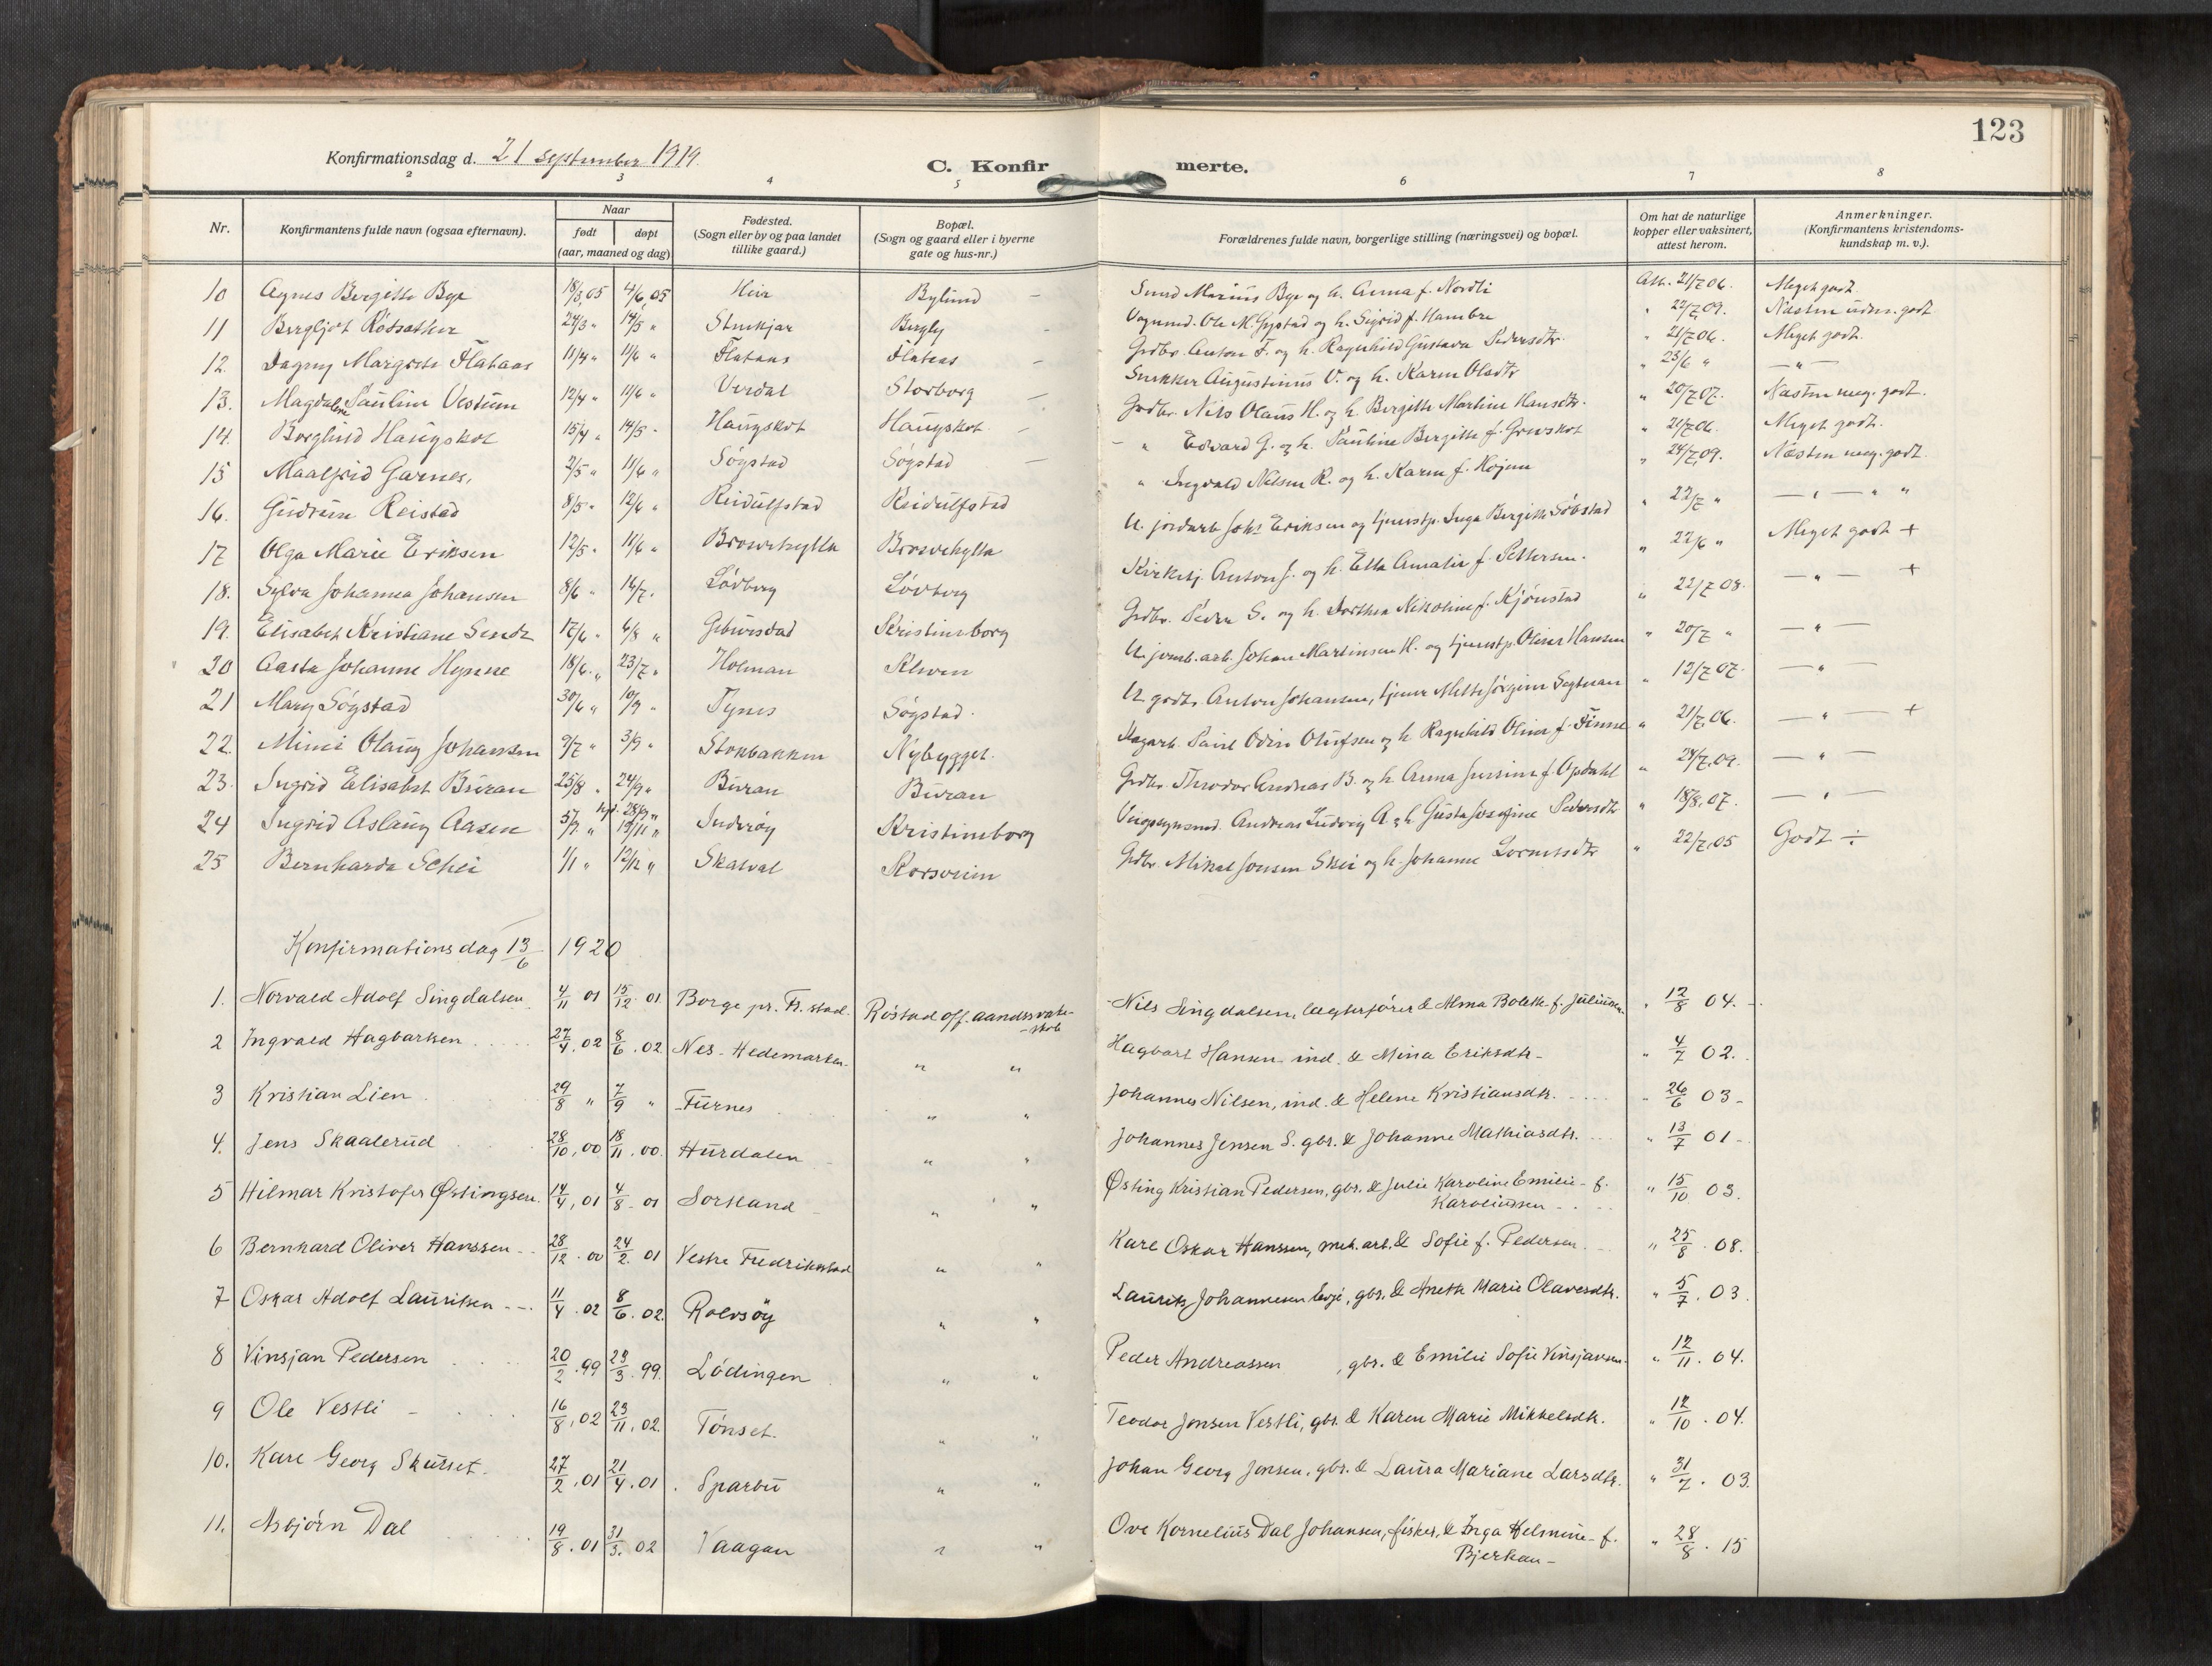 123
Konfirmationsdag d. 21 september 1919.
C. Konfirmerte.
2 3 4 5 6 7 8
Nr. Konfirmantens fulde navn (ogsaa efternavn). Naar født døpt (aar, maaned og dag) Fødested. (Sogn eller by og paa landet tillike gaard.) Bopæl. (Sogn og gaard eller i byerne gate og hus-nr.) Forældrenes fulde navn, borgerlige stilling (næringsvei) og bopæl. Om hat de naturlige kopper eller vaksinert, attest herom. Anmerkninger. (Konfirmantens kristendoms-kundskap m. v.).
10 Agnes Bergitte Bye 18/3,05 4/6,05 Bylund Smed Marius Bye og h. Anna f. Nordli Att. 21/7 06. Meget godt.
11 Bergljot Rødsæther 24/3 " 14/5 " Stuskjar Bergly Vognmd. Ole M. Gystad og h. Sigrid f. Hambre " 22/7,09. Næsten udm. godt
12. Dagny Margrete Flataas 11/4 " 11/6 " Flataas Flataas Grdbr. Anton F. og h. Ragnhild Gustava Pedersdtr. " 21/7 06. Meget godt.
13. Magdalene Pauline Vestum 12/4 " 11/6 " Verdal Storborg Snekker Augustinus V. og h. Karen Olsdtr " 23/6 " — " —
14. Borghild Haugskot 15/4 " 14/5 " Haugskot Haugskot Grdbr. Nils Olaus H. og h. Bergitte Martine Hansdtr. " 20/7 07. Næsten meg. godt.
15 Maalfrid Garnes. 2/5 " 11/6 " Søgstad Søgstad " Edvard G. og h. Pauline Bergitte f. Grevskot " 21/7 06. Meget godt.
16. Gudrun Reistad 8/5 " 12/6 " Reidulfstad Reidulfstad " Ingvald Nilsen R. og h. Karen f. Hojem " 24/7,09. Næsten meg. godt.
17 Olga Marie Eriksen 12/5 " 11/6 " Brovehylla Brovehylla U. jordarb. Johs Eriksen og tjenestp. Inga Bergitte Søbstad " 22/7 " — " — " "
18. Sylva Johanna Johansen 8/6 " 16/7 " Lövberg Lövberg Kirketj. Anton J. og h. Etta Amalie f. Pettersen. " 22/6 " Meget godt +
19. Elisabet Kristiane Sende 17/6 " 6/8 " Kristineborg Grdbr. Peder S. og h. Dorthea Nikoline f. Kjønstad " 22/7 08. — " — +
20 Aasta Johanne Hynne 18/6 " 23/7 " Holman U. jernb. arb. Johan Martinsen H. og tjenestp. Oline Hansen " 20/7 " — " —
21 Mary Søgstad 30/6 " 10/9 " Tynes Søgstad. U. godts. Anton Johansen, tjener Mette Jørgine Segtnan " 12/7 07. — " —
22. Mimi Olaug Johansen 9/7 " 3/9 " Stokbakken Nybygget. Dagarb. Paul Odin Olufsen og h. Ragnhild Olina f. Finne " 21/7,06. — " — +
23. Ingrid Elisabet Buran 25/8 " 24/9 " Buran Buran Grdbr. Theodor Andreas B. og h. Anna Jensine f. Opdahl " 24/7,09. — " —
24 Ingrid Aslaug Aasen 5/9 " 28/9 " 19/11 " Inderøy Kristineborg Veiopsynsmd. Andreas Ludvig A. og h. Gusta Josefine Pedersdtr " 18/8,07. — " —
25 Bernharda Schei 1/11 " 12/12 " Skatval Korsveien Grdbr. Mikal Jonsen Skei og h. Johanna Lorentsdtr " 22/7,05 Godt ÷
Konfirmationsdag 13/6 1920
1. Norvald Adolf Singdalsen 4/11 01 15/12. 01. Borge pr. Fr. stad. Röstad off. aandssvake-skole Nils Singdalsen, lægterfører & Alma Bolette f. Juliussen. " 12/8 04.
2 Ingvald Hagbartsen 27/4.02 8/6.02 Nes - Hedemarken " " Hagbart Hansen ind. & Mina Eriksdtr. " 4/7 02.
3 Kristian Lien 29/8 " 7/9 " Furnes " " Johannes Nilsen, ind. & Helene Kristiansdtr. " 26/6 03
4. Jens Skaalerud 28/10,00 18/11.00. Hurdalen " " Johannes Jensen S. gbr. & Johanne Mathiasdtr. " 13/7 01
5 Hilmar Kristofer Østingsen. 14/4,01 4/8 01 Sortland " " Østing Kristian Pedersen, gbr. & Julie Karoline Emilie f. Karoliussen " 15/10 03.
6 Bernhard Oliver Hanssen 28/12.00 24/2.01 Vestre Fredrikstad " " Karl Oskar Hanssen, mek. arb. & Sofie f. Pedersen " 25/8.08.
7 Oskar Adolf Lauritsen 11/4.02 8/6.02. Rolvsöy " " Laurits Johannesen Evje, gbr. & Anette Marie Olavesdtr. " 5/7.03.
8 Vinsjan Pedersen 20/2.99 23/3.99. Lödingen " " Peder Andreassen, gbr. & Emilie Sofie Vinsjansen. " 12/11.04.
9 Ole Vestli 16/8,02 23/11,02. Tönset. " " Teodor Jonsen Vestli, gbr. & Karen Marie Mikkelsdtr. " 12/10.04.
10. Karl Georg Skurset. 27/2,01 21/4.01. Sparbu " " Johan Georg Jensen, gbr. & Laura Mariane Larsdtr. " 31/7.03.
11. Asbjörn Dal 19/8.01 31/3.02 Vaagan " " Ove Kornelius Dal Johansen, fisker, & Inga Helmine f. Bjerkan " 28/8.15